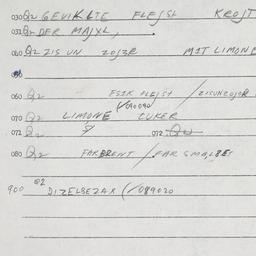 030 Q2 GEVIKLTE FLEJSL KROJT
032 Q2 DER MAJXL,
040 Q2 ZIS UN ZOJER MIT LIMONE
050
060 Q2 FSIK FLEJSH / ZISUNZOJER
090090
070 Q2 LIMONE CUKER
072 Q2 072 Q2
080 Q2 FARBRENT / FAR SMALBET
900 Q2 DIZELBEZAX (/089020